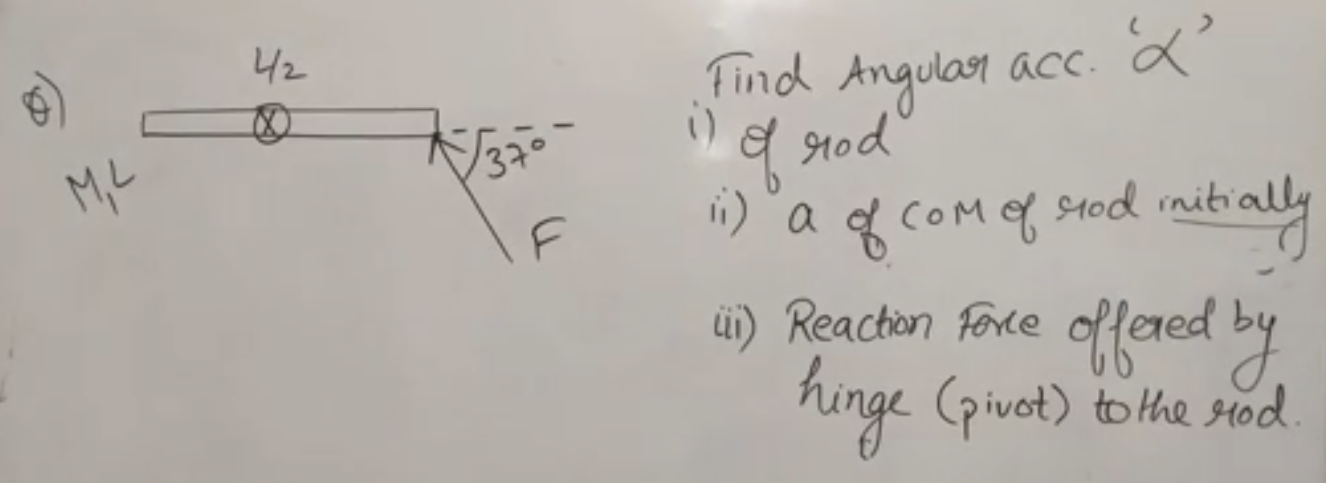 Q)
L/2
M,L
37°
F
Find Angular acc. 'α'
i) of rod
ii) a of COM of rod initially
iii) Reaction Force offered by
hinge (pivot) to the rod.